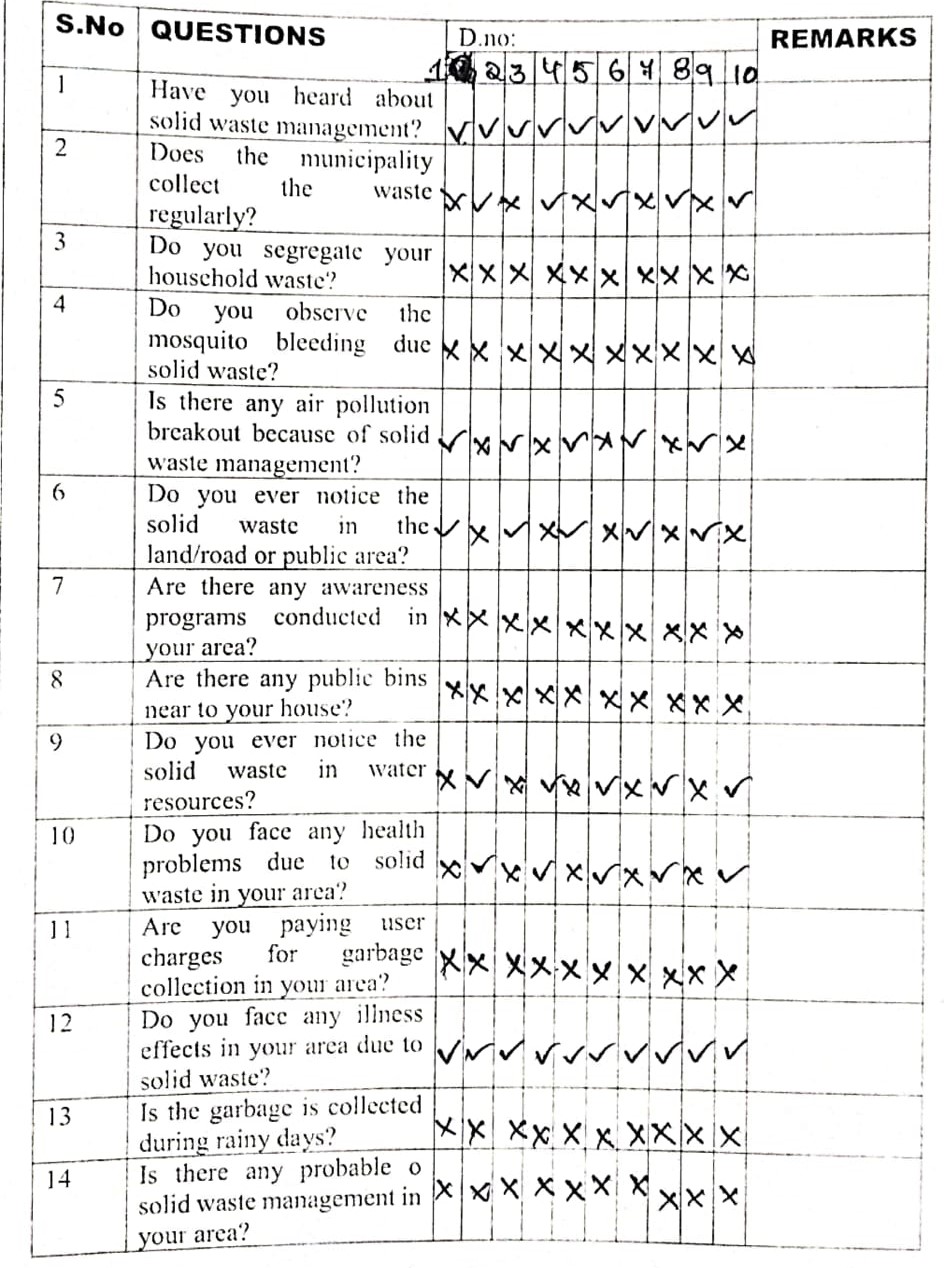 S.No QUESTIONS D.no: REMARKS
1 2 3 4 5 6 7 8 9 10
1 Have you heard about
solid waste management? ✓ ✓ ✓ ✓ ✓ ✓ ✓ ✓ ✓ ✓
2 Does the municipality
collect the waste
regularly? ✗ ✓ ✗ ✓ ✗ ✓ ✗ ✓ ✗ ✓
3 Do you segregate your
household waste? ✗ ✗ ✗ ✗ ✗ ✗ ✗ ✗ ✗ ✗
4 Do you observe the
mosquito bleeding due
solid waste? ✗ ✗ ✗ ✗ ✗ ✗ ✗ ✗ ✗ ✗
5 Is there any air pollution
breakout because of solid ✓ ✗ ✓ ✗ ✓ ✗ ✓ ✗ ✓ ✗
waste management?
6 Do you ever notice the
solid waste in the ✓ ✗ ✓ ✗ ✓ ✗ ✓ ✗ ✓ ✗
land/road or public area?
7 Are there any awareness
programs conducted in ✗ ✗ ✗ ✗ ✗ ✗ ✗ ✗ ✗ ✗
your area?
8 Are there any public bins ✗ ✗ ✗ ✗ ✗ ✗ ✗ ✗ ✗ ✗
near to your house?
9 Do you ever notice the
solid waste in water ✗ ✓ ✗ ✓ ✗ ✓ ✗ ✓ ✗ ✓
resources?
10 Do you face any health
problems due to solid ✗ ✓ ✗ ✓ ✗ ✓ ✗ ✓ ✗ ✓
waste in your area?
11 Are you paying user
charges for garbage ✗ ✗ ✗ ✗ ✗ ✗ ✗ ✗ ✗ ✗
collection in your area?
12 Do you face any illness
effects in your area due to ✓ ✓ ✓ ✓ ✓ ✓ ✓ ✓ ✓ ✓
solid waste?
13 Is the garbage is collected
during rainy days? ✗ ✗ ✗ ✗ ✗ ✗ ✗ ✗ ✗ ✗
14 Is there any probable o
solid waste management in ✗ ✗ ✗ ✗ ✗ ✗ ✗ ✗ ✗ ✗
your area?